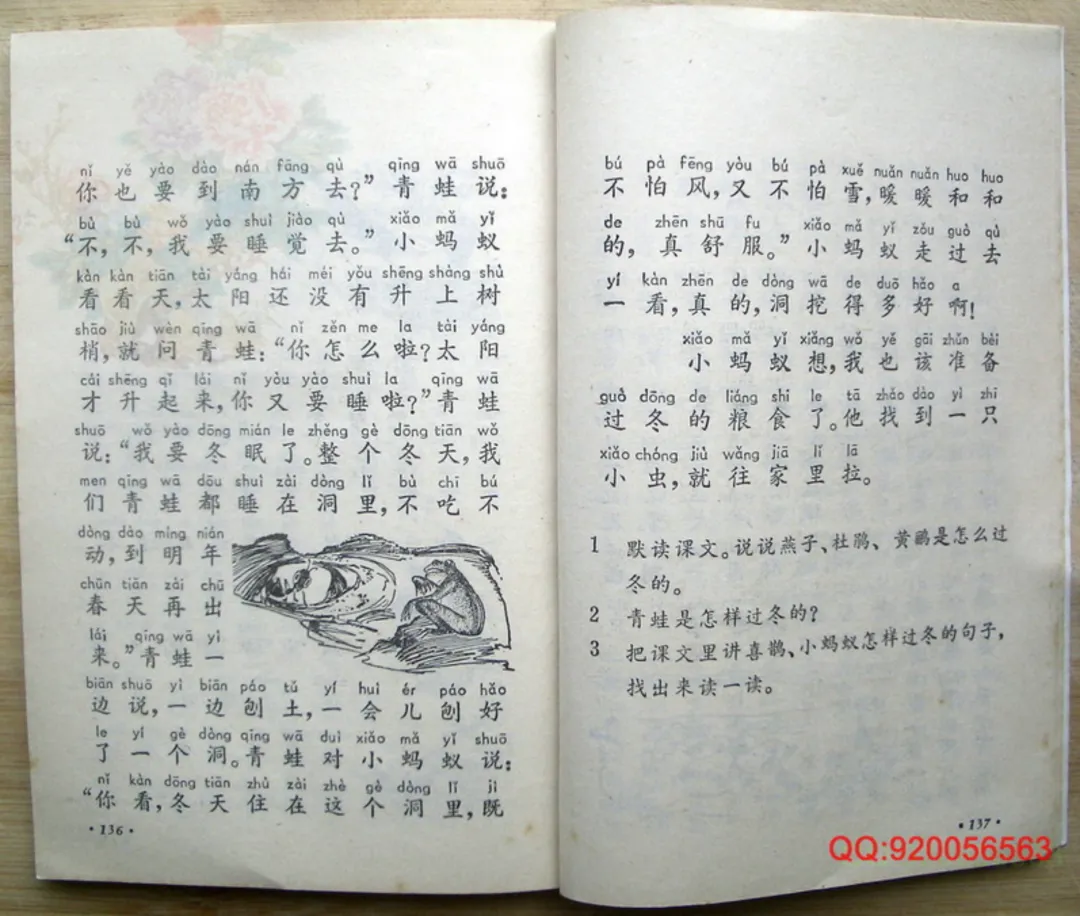 nǐ yě yào dào nán fāng qù qīng wā shuō
你也要到南方去?”青蛙说:
bù bù wǒ yào shuì jiào qù xiǎo mǎ yǐ
“不,不,我要睡觉去。”小蚂蚁
kàn kàn tiān tài yáng hái méi yǒu shēng shàng shù
看看天,太阳还没有升上树
shāo jiù wèn qīng wā nǐ zěn me la tài yáng
梢,就问青蛙:“你怎么啦?太阳
cái shēng qǐ lái nǐ yòu yào shuì la qīng wā
才升起来,你又要睡啦?”青蛙
shuō wǒ yào dōng mián le zhěng gè dōng tiān wǒ
说:“我要冬眠了。整个冬天,我
men qīng wā dōu shuì zài dòng lǐ bù chī bú
们青蛙都睡在洞里,不吃不
dòng dào míng nián
动,到明年
chūn tiān zài chū
春天再出
lái qīng wā yì
来。”青蛙一
biān shuō yì biān páo tǔ yí huì ér páo hǎo
边说,一边刨土,一会儿刨好
le yí gè dòng qīng wā duì xiǎo mǎ yǐ shuō
了一个洞。青蛙对小蚂蚁说:
nǐ kàn dōng tiān zhù zài zhè gè dòng lǐ jì
“你看,冬天住在这个洞里,既
·136·
bú pà fēng yòu bú pà xuě nuǎn nuǎn huo huo
不怕风,又不怕雪,暖暖和和
de zhēn shū fu xiǎo mǎ yǐ zǒu guò qù
的,真舒服。”小蚂蚁走过去
yí kàn zhēn de dòng wā de duō hǎo a
一看,真的,洞挖得多好啊!
xiǎo mǎ yǐ xiǎng wǒ yě gāi zhǔn bèi
小蚂蚁想,我也该准备
guò dōng de liáng shi le tā zhǎo dào yì zhī
过冬的粮食了。他找到一只
xiǎo chóng jiù wǎng jiā lǐ lā
小虫,就往家里拉。
1 默读课文。说说燕子、杜鹃、黄鹂是怎么过
冬的。
2 青蛙是怎样过冬的?
3 把课文里讲喜鹊、小蚂蚁怎样过冬的句子,
找出来读一读。
·137·
QQ:920056563